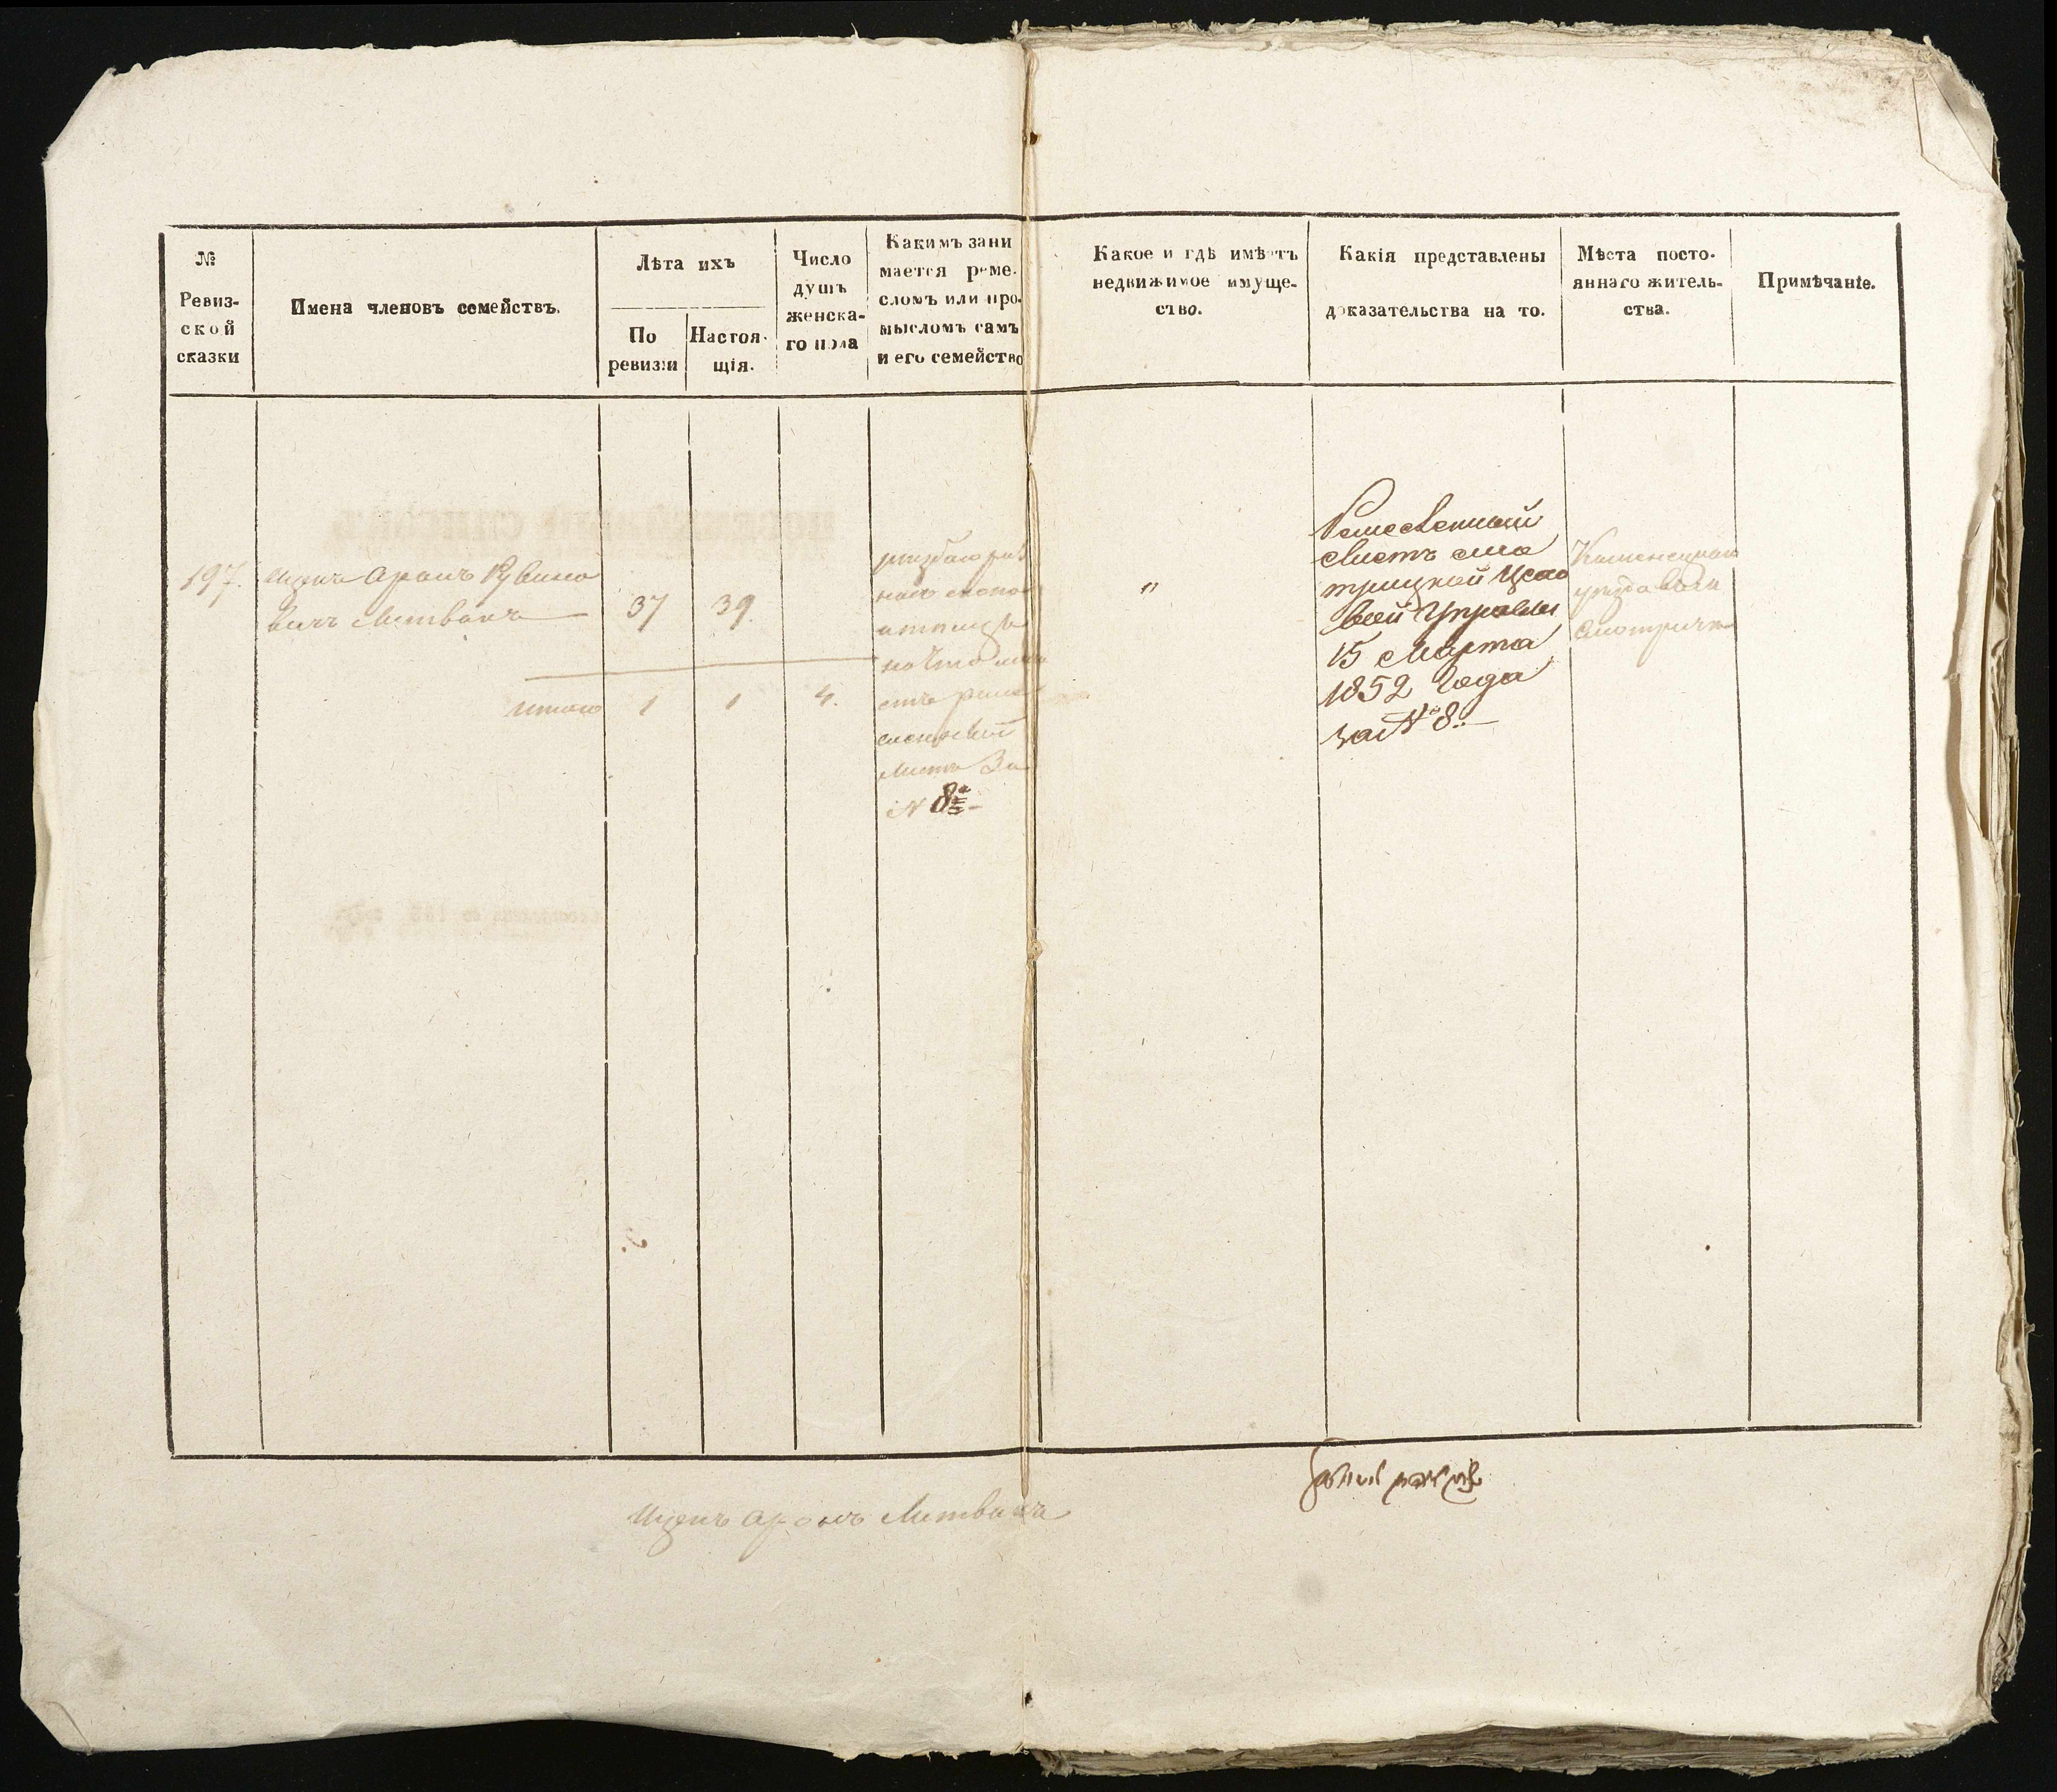 №
Ревиз-
ской
сказки
Имена членовъ семействъ.
Лѣта ихъ
По
ревизіи
Настоя-
щія.
Число
душъ
женска-
го пола
Какимъ зани
мается реме-
сломъ или про-
мысломъ самъ
и его семейство
Какое и гдѣ имѣетъ
недвижимое имуще-
ство.
Какія представлены
доказательства на то.
Мѣста посто-
яннаго житель-
ства.
Примѣчаніе.
197.
Ицекъ Аронъ Рувино
вичъ Литвакъ
37
39
на что
листъ За
N 8
"
Ремесленный
Листъ Смо
трицкой Цехо
вой Управы
15 Марта
1852 Года
за N 8.
Каменецкаго
уѣзда
Смотричъ
Итого
1
1
4.
Ицекъ Аронъ Литвакъ